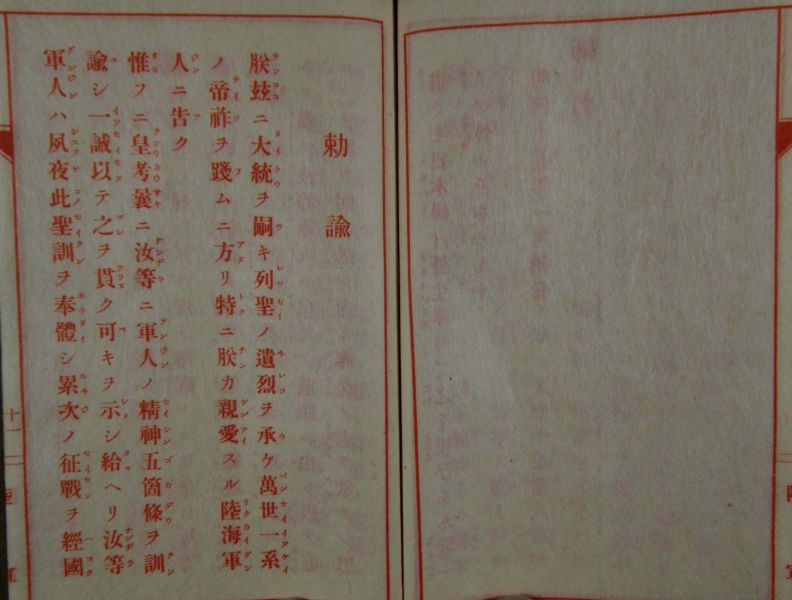 勅諭
朕玆ニ大統ヲ嗣キ列聖ノ遺烈ヲ承ケ萬世一系
ノ帝祚ヲ踐ムニ方リ特ニ朕カ親愛スル陸海軍
人ニ告ク
惟フニ皇考曩ニ汝等ニ軍人ノ精神五箇條ヲ訓
諭シ一誠以テ之ヲ貫ク可キヲ示シ給ヘリ汝等
軍人ハ夙夜此聖訓ヲ奉體シ累次ノ征戰ヲ經國
十一